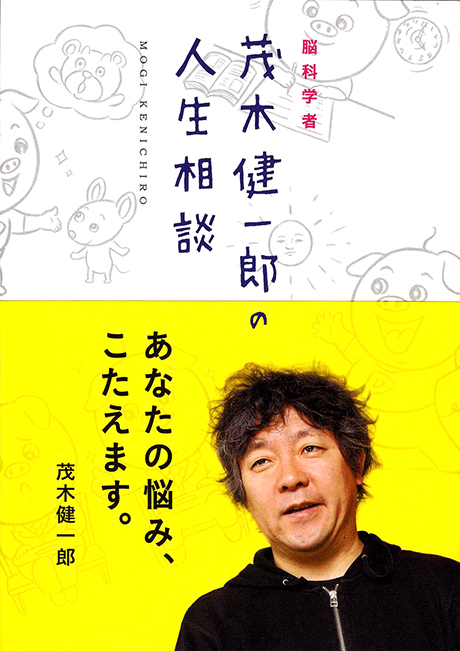 脳科学者
茂木健一郎の
人生相談
MOGI KENICHIRO
あなたの悩み、
こたえます。
茂木健一郎